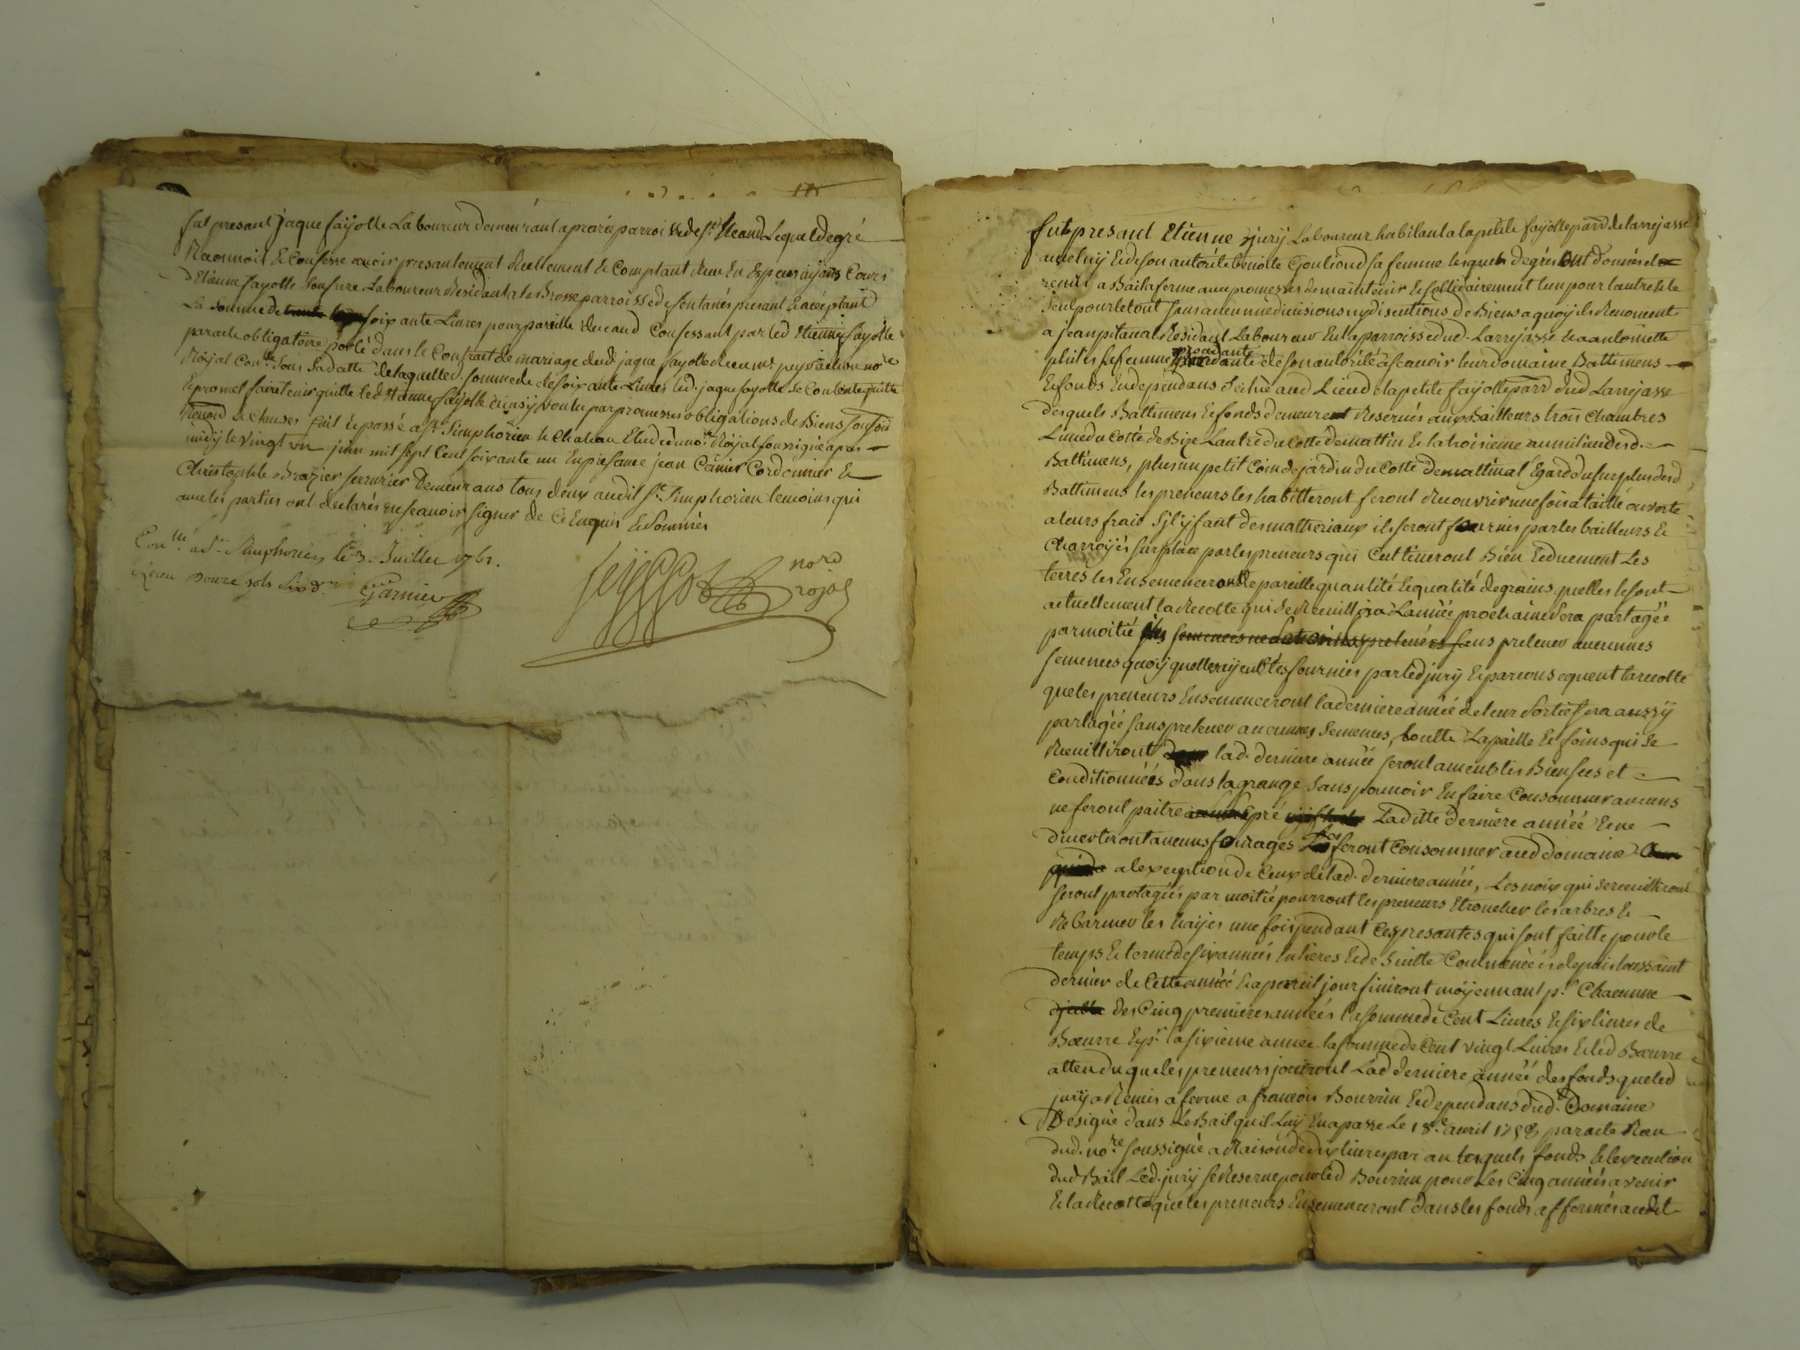 fut present jaque fayolle Laboureur demeurant a prarie parroisse de st. Lequel de gré
Reconnoit Et Confesse avoir presantement Reellement Et Comptant Receu En Especes ayans Cours
d'Etienne fayolle son frere Laboureur Residant a la Brosse parroisse de fontanés present Et acceptant
La somme de soixante Livres pour pareille Eleue aud Confessant par led Etienne fayolle
par acte obligatoire porté dans le Contrat de mariage dud. jaque fayolle Receu me no.re
Royal Con.lle Sous Sa datte de laquelled somme de soixante Livres led. jaque fayolle se Contente quitte
Et promet faire tenir quitte led Etienne fayolle ainsy voulu par promesses obligations de Biens
Renon. et Clauses fait Et passé a St. Simphorien le Chateau Etude du no.re Royal soussigné apres
midy le vingt un juin mil sept Cent soixante un En presance jean Cordonnier Et
Christophle Brazier serrurier Demeurans tous deux audit St. Simphorien temoins qui
avec les parties ont declarés ne scavoir signer de Ce Enquis Et sommés
Con.llé a St. Simphorien le 3. Juillet 1761.
Receu douze sols six d.rs Garnier
no.re
royal
fut present Etienne jury Laboureur habitant a la petite fayolle parr de larrejasse
avec luy Et de son autorité benoite sa femme lesquels de gré ont donnés et
remis a Bail a ferme avec promesses de maintenir Et sollidairement l'un pour l'autre Et le
seul pour le tout sans aucunne divisions ny discutions de Biens a quoy ils Renoncent
a jean pitaval Residant Laboureur En la parroisse dud. Larrejasse Et a antoinette
sa femme procedante de son autorité a scavoir leur domaine Battimens
Et fonds En dependans situé aud Lieu de la petite fayolle parr dud Larrejasse
desquels Battimens Et fonds demeurent Reservés aux Bailleurs trois Chambres
L'une du Cotté de Bize L'autre du Cotté de mattin Et la troisieme au milieu desd.
Battimens, plus un petit Coin de jardin du Cotté de mattin a l'Egard du surplus desd
Battimens les preneurs les habitteront feront Recouvrir une fois a taille ouverte
a leurs frais S'il y faut des matheriaux ils seront fournis par les bailleurs Et
Charroyés sur place par les preneurs qui Cultiveront Bien Et duement Les
terres les Ensemenceront de pareille quantité Et qualité de grains quelles le sont
actuellement la Recolte qui se Recueillira L'année prochaine sera partagée
par moitié sans prelever aucunnes
semences quoy quelles ayent étés fournies par led jury Et par consequent la recolte
que les preneurs Ensemenceront la derniere année de leur sortie sera aussy
partagée sans prelever aucunnes semences, La paille Et foins qui se
Recuilliront lad. derniere année seront amenblés Bien secs et
Conditionnés dans la grange sans pouvoir En faire Consommer aucuns
ne feront paitre pré Laditte derniere année Et ne
divertiront aucuns fourages Les feront Consommer aud domaine
a l'exception de Ceux de lad. derniere année, Les noix qui se recuilliront
seront partagées par moitié pourront les preneurs Etroncher les arbres Et
Rebarrer les hayes une fois pendant Ces presantes qui sont faitte pour le
temps Et terme de six années Entieres Et de Suitte Commencées depuis toussaint
dernier de Cette année Et a pareil jour finiront moyennant p.r Chacunne
des Cinq premieres années la somme de Cent Livres Et six livres de
Beurre Et p.r la sixieme année la somme de Cent vingt Livres Et led Beurre
attendu que les preneurs jouiront Lad derniere année des fonds que led
jury a Remis a ferme a francois Bouvrin Et dependans dud. Domaine
Designé dans Le Bail qu'il Luy En a passé Le 18.e avril 1758 par acte Receu
dud. no.re soussigné a Raison de dix livres par an lesquels fonds Et l'execution
dud Bail Led. jury se Reserve pour led Bouvrin pour Les Cinq années a venir
Et la Recolte que les preneurs Ensemenceront dans les fonds affermés audit